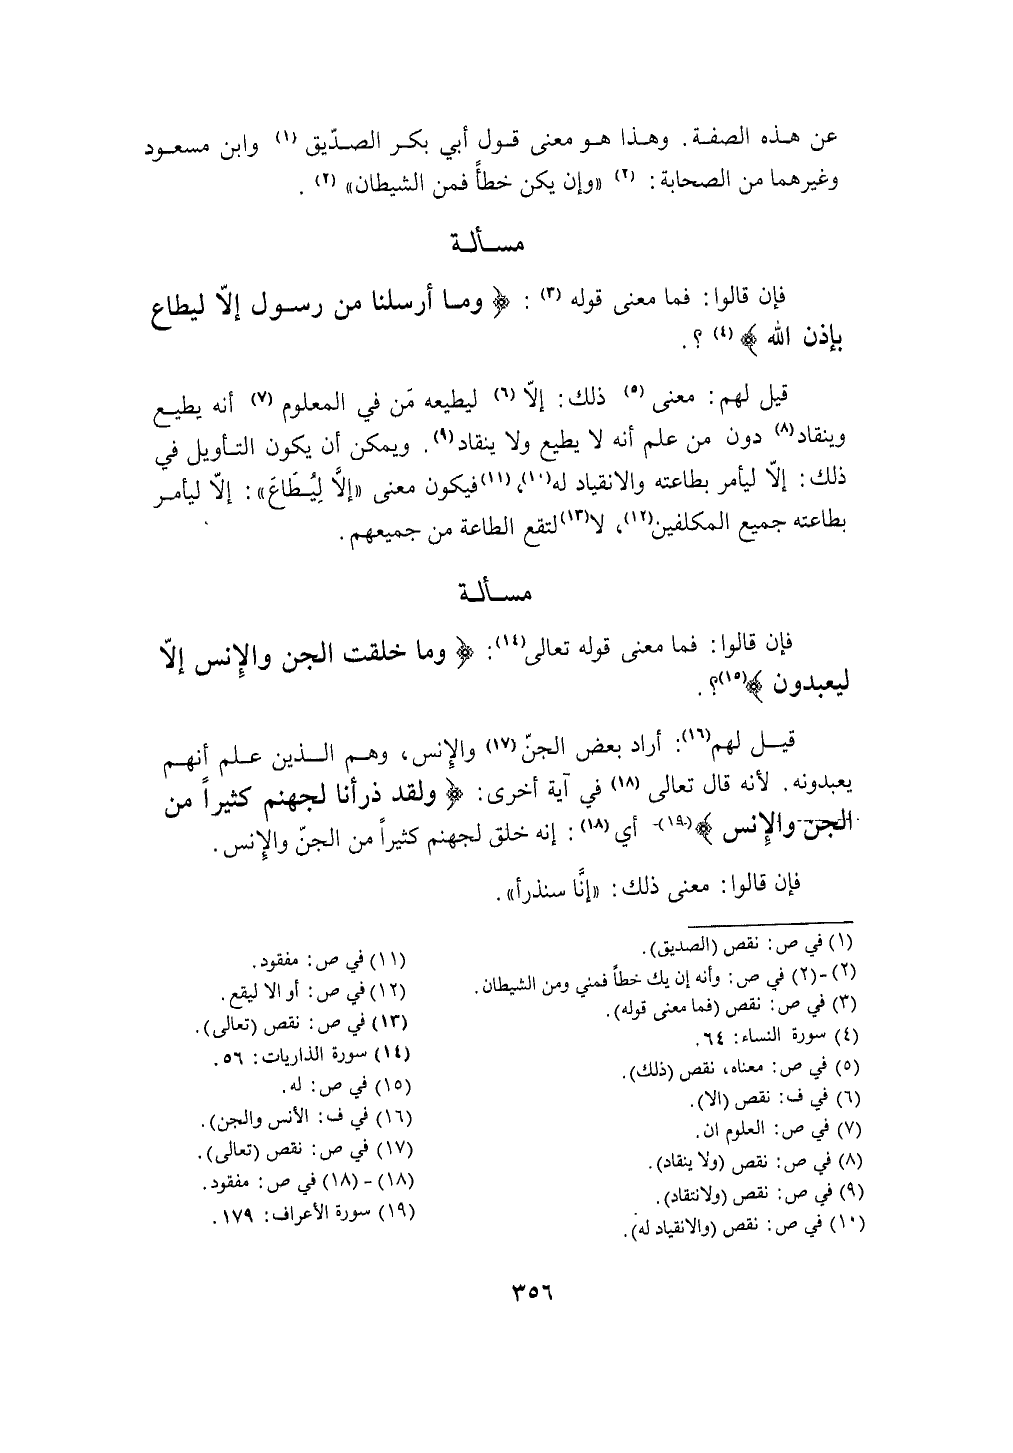 عن هـذه الصفـة. وهـذا هـو معنى قـول أبي بكـر الصـدّيق (١) وابن مسعـود
وغيرهما من الصحابة: (٢) «وإن يكن خطأً فمن الشيطان» (٢) .
مسـألـة
فإن قالوا: فما معنى قوله (٣) : ﴿ ومـا أرسلنا من رسـول إلّا ليطاع
بإذن الله ﴾ (٤) ؟ .
قيل لهم: معنى (٥) ذلك: إلّا (٦) ليطيعه مَن في المعلوم (٧) أنه يطيـع
وينقاد(٨) دون من علم أنه لا يطيع ولا ينقاد(٩). ويمكن أن يكون التـأويل في
ذلك: إلّا ليأمر بطاعته والانقياد له(١٠)، (١١)فيكون معنى «إلَّا لِيُـطَاعَ»: إلّا ليأمـر
بطاعته جميع المكلفين(١٢)، لا(١٣)لتقع الطاعة من جميعهم.
مسـألـة
فإن قالوا: فما معنى قوله تعالى(١٤): ﴿ وما خلقت الجن والإنس إلّا
ليعبدون ﴾(١٥)؟ .
قيـل لهم(١٦): أراد بعض الجنّ (١٧) والإنس، وهـم الـذين علـم أنهـم
يعبدونه. لأنه قال تعالى (١٨) في آية أخرى: ﴿ ولقد ذرأنا لجهنم كثيراً من
الجن والإنس ﴾(١٩) أي (١٨) : إنه خلق لجهنم كثيراً من الجنّ والإنس.
فإن قالوا: معنى ذلك: «إنَّا سنذرأ».
(١) في ص: نقص (الصديق).
(٢)-(٢) في ص: وأنه إن يك خطأ فمني ومن الشيطان.
(٣) في ص: نقص (فما معنى قوله).
(٤) سورة النساء: ٦٤.
(٥) في ص: معناه، نقص (ذلك).
(٦) في ف: نقص (الا).
(٧) في ص: العلوم ان.
(٨) في ص: نقص (ولا ينقاد).
(٩) في ص: نقص (ولانتقاد).
(١٠) في ص: نقص (والانقياد له).
(١١) في ص: مفقود.
(١٢) في ص: أو الا ليقع.
(١٣) في ص: نقص (تعالى).
(١٤) سورة الذاريات: ٥٦.
(١٥) في ص: له.
(١٦) في ف: الأنس والجن).
(١٧) في ص: نقص (تعالى).
(١٨)-(١٨) في ص: مفقود.
(١٩) سورة الأعراف: ١٧٩.
٣٥٦